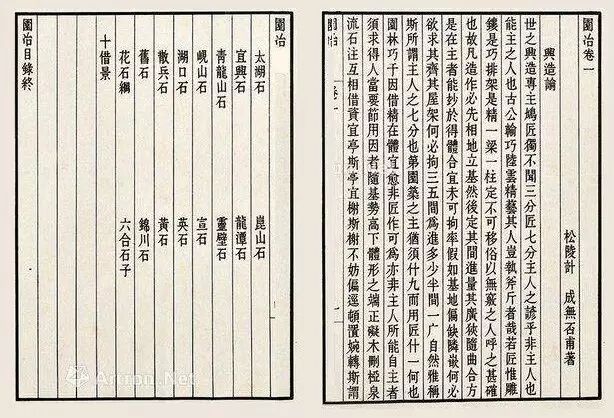 園冶卷一
興造論
松陵計 成無否甫著
世之興造專主鳩匠獨不聞三分匠七分主人之諺乎非主人也
能主之人也古公輸巧陸雲精藝其人豈執斧斤者哉若匠惟雕
鏤是巧排架是精一梁一柱定不可移俗以無竅之人呼之甚確
也故凡造作必先相地立基然後定其間進量其廣狹隨曲合方
是在主者能妙於得體合宜未可拘率假如基地偏缺隣嵌何必
欲求其齊其屋架何必拘三五間為進多少半間一广自然雅稱
斯所謂主人之七分也第園築之主猶須什九而用匠什一何也
園林巧于因借精在體宜愈非匠作可為亦非主人所能自主者
須求得人當要節用因者隨基勢高下體形之端正礙木刪椏泉
流石注互相借資宜亭斯亭宜榭斯榭不妨偏逕頓置婉轉斯謂
園冶 卷一 一
園冶
太湖石 崑山石
宜興石 龍潭石
青龍山石 靈璧石
峴山石 宣石
湖口石 英石
散兵石 黃石
舊石 錦川石
花石綱 六合石子
十借景
園冶目錄終
Artron.Net